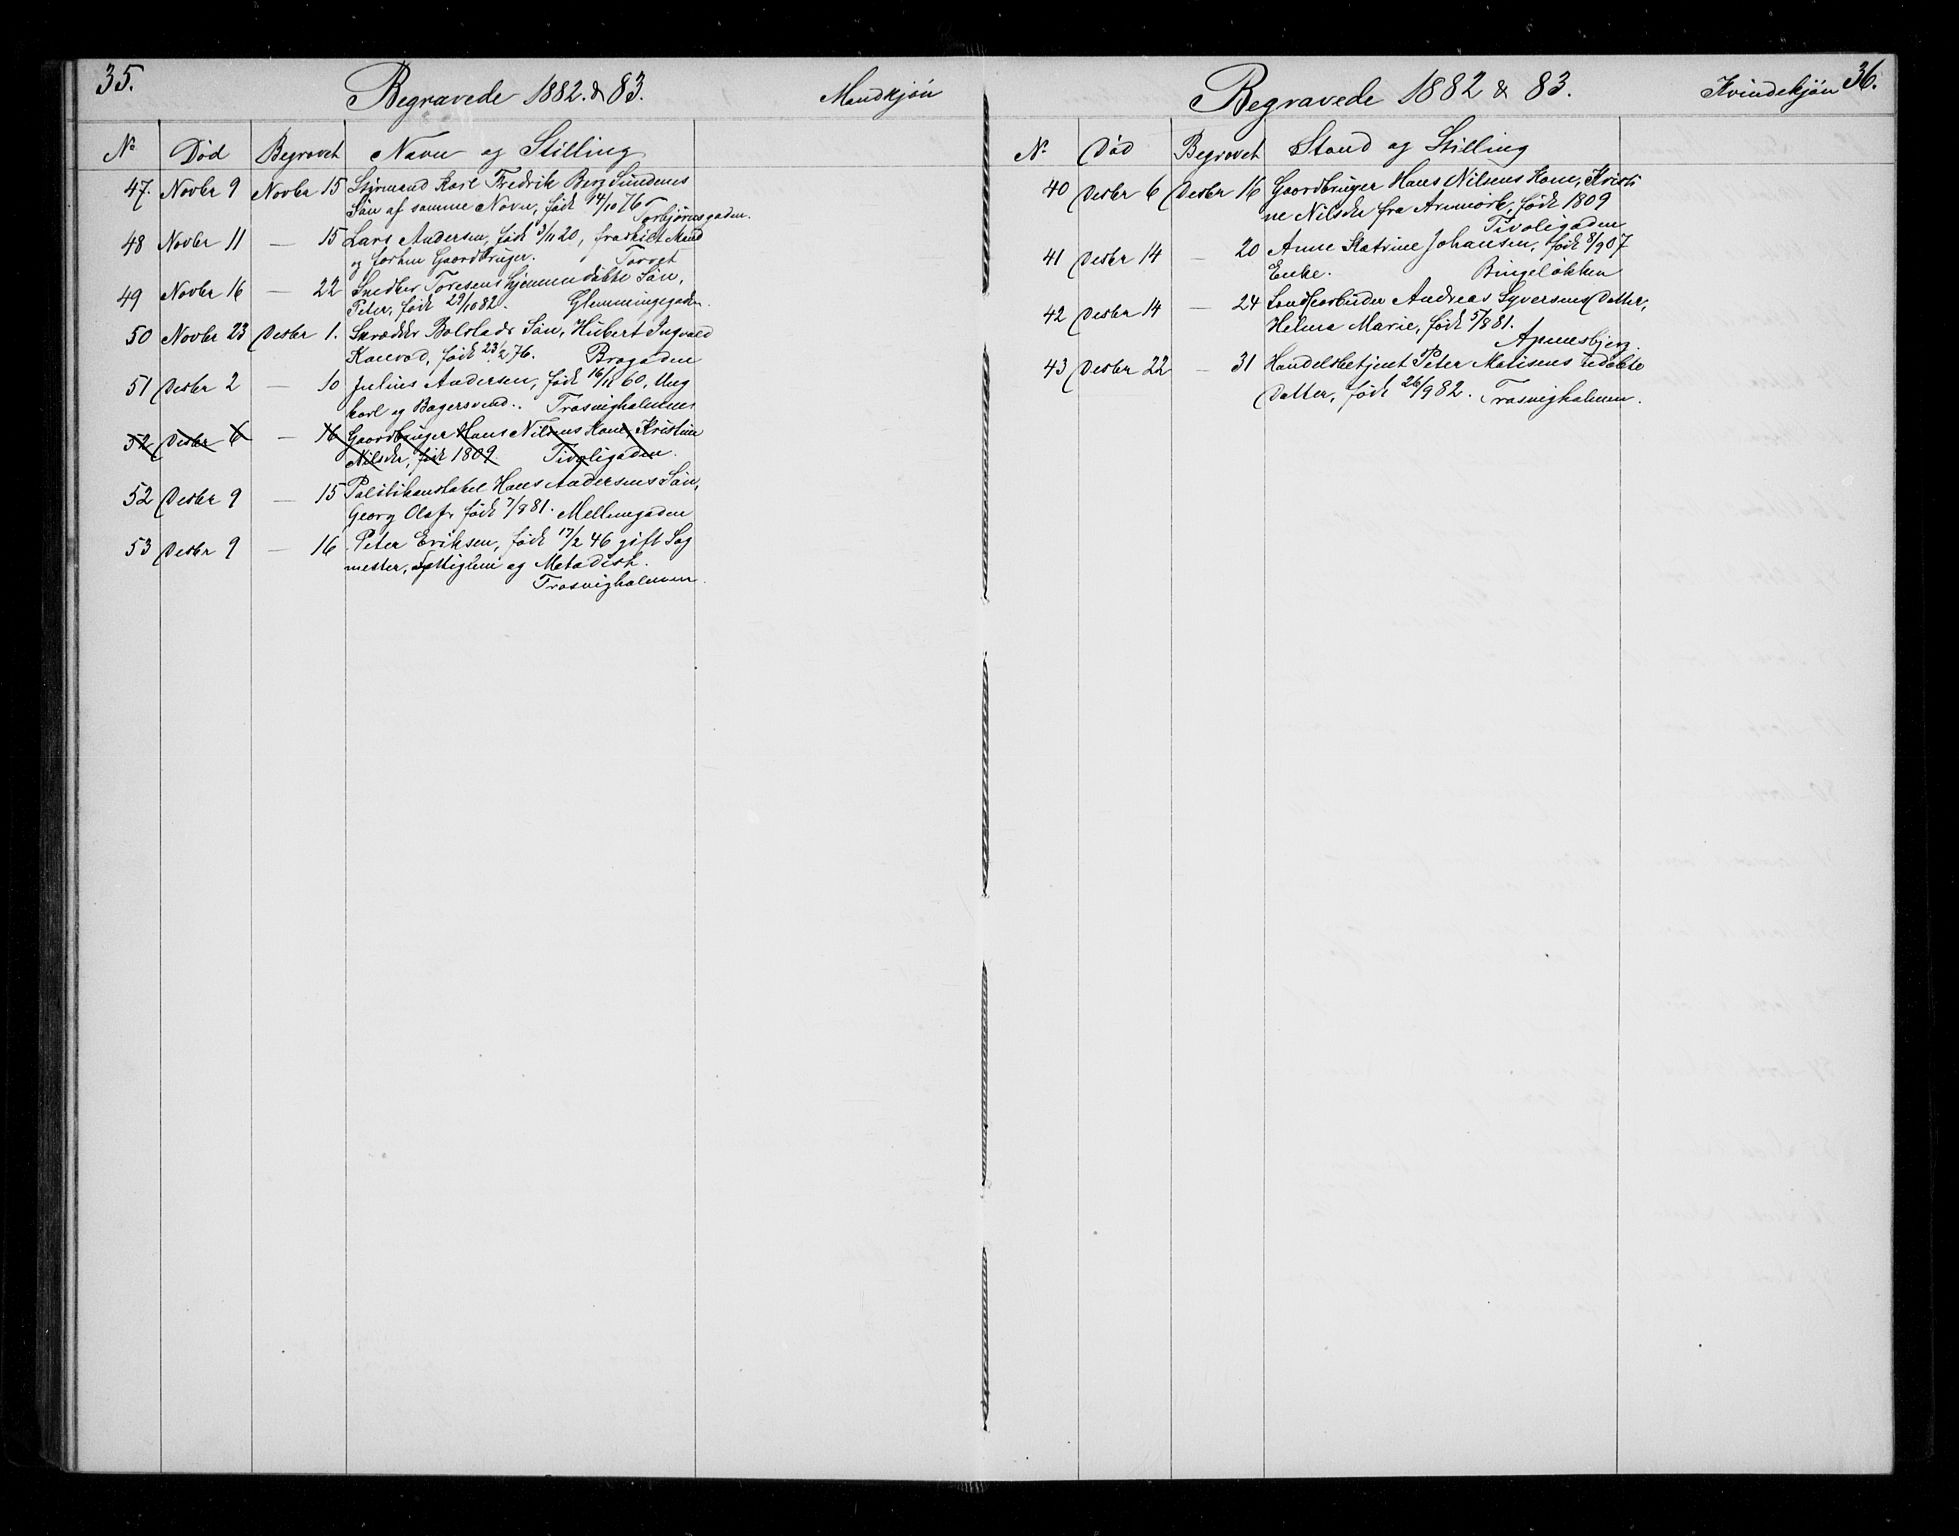 35.
Begravede 1882. & 83.
Mandkjøn
No Død Begravet Navn og Stilling
47. Novbr 9 Novbr 15 Styrmand Karl Fredrik Berg Sundenes
Søn af samme Navn, født 14/10 76
Torbjørnsgaden.
48 Novbr 11 — 15 Lars Andersen, født 3/11 20, fraskilt Mand
og forhen Gaardbruger. Torvet
49 Novbr 16 — 22 Snedker Toresens hjemmedøbte Søn,
Peter, født 29/10 82. Glemmingegaden.
50 Novbr 23 Desbr 1. Skrædder Bolstads Søn, Hubert Ingvald
Konrad, født 23/2 76. Brogaden
51 Desbr 2 — 10 Julius Andersen, født 16/11 60, Ung
karl og Bagersvend. Trosvigholmen
52 Desbr 6 — 16 Gaardbruger Hans Nilsens Kone, Kristine
Nilsdr, født 1809. Tivoligaden.
52 Desbr 9 — 15 Politikonstabel Hans Andersens Søn,
Georg Olaf, født 7/9 81. Mellemgaden
53 Desbr 9 — 16 Peter Eriksen, født 17/2 46 gift Sag
mester, Fattiglem og Metodist.
Trosvigholmen.
36.
Begravede 1882 & 83.
Kvindekjøn
No Død Begravet Stand og Stilling
40 Desbr 6 Desbr 16 Gaardbruger Hans Nilsens Kone, Kristi
ne Nilsdr fra Aremark, født 1809
Tivoligaden
41 Desbr 14 — 20 Anne Katrine Johansen, født 8/9 07
Enke. Bingeløkken
42 Desbr 14 — 24 Andreas Syversens Datter,
Helma Marie, født 5/8 81.
Apenesbjerg.
43 Desbr 22 — 31 Handelsbetjent Peter Matisens udøbte
Datter, født 26/9 82. Trosvigholmen.